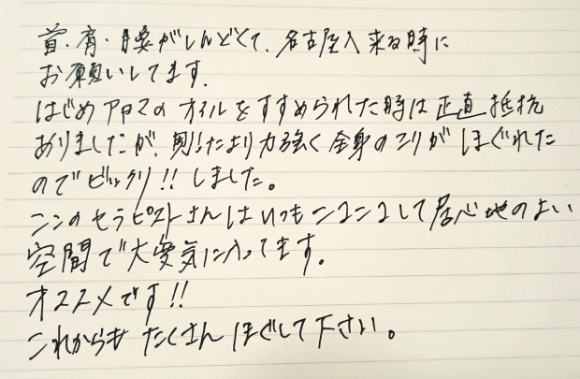 首・肩・腰がしんどくて、名古屋入来る時に
お願いしてます。
はじめアロマのオイルをすすめられた時は正直抵抗
ありましたが、思ったより力強く全身のコリがほぐれた
のでビックリ!!しました。
ここのセラピストさんはいつもニコニコして居心地のよい
空間で大変気に入ってます。
オススメです!!
これからもたくさんほぐして下さい。